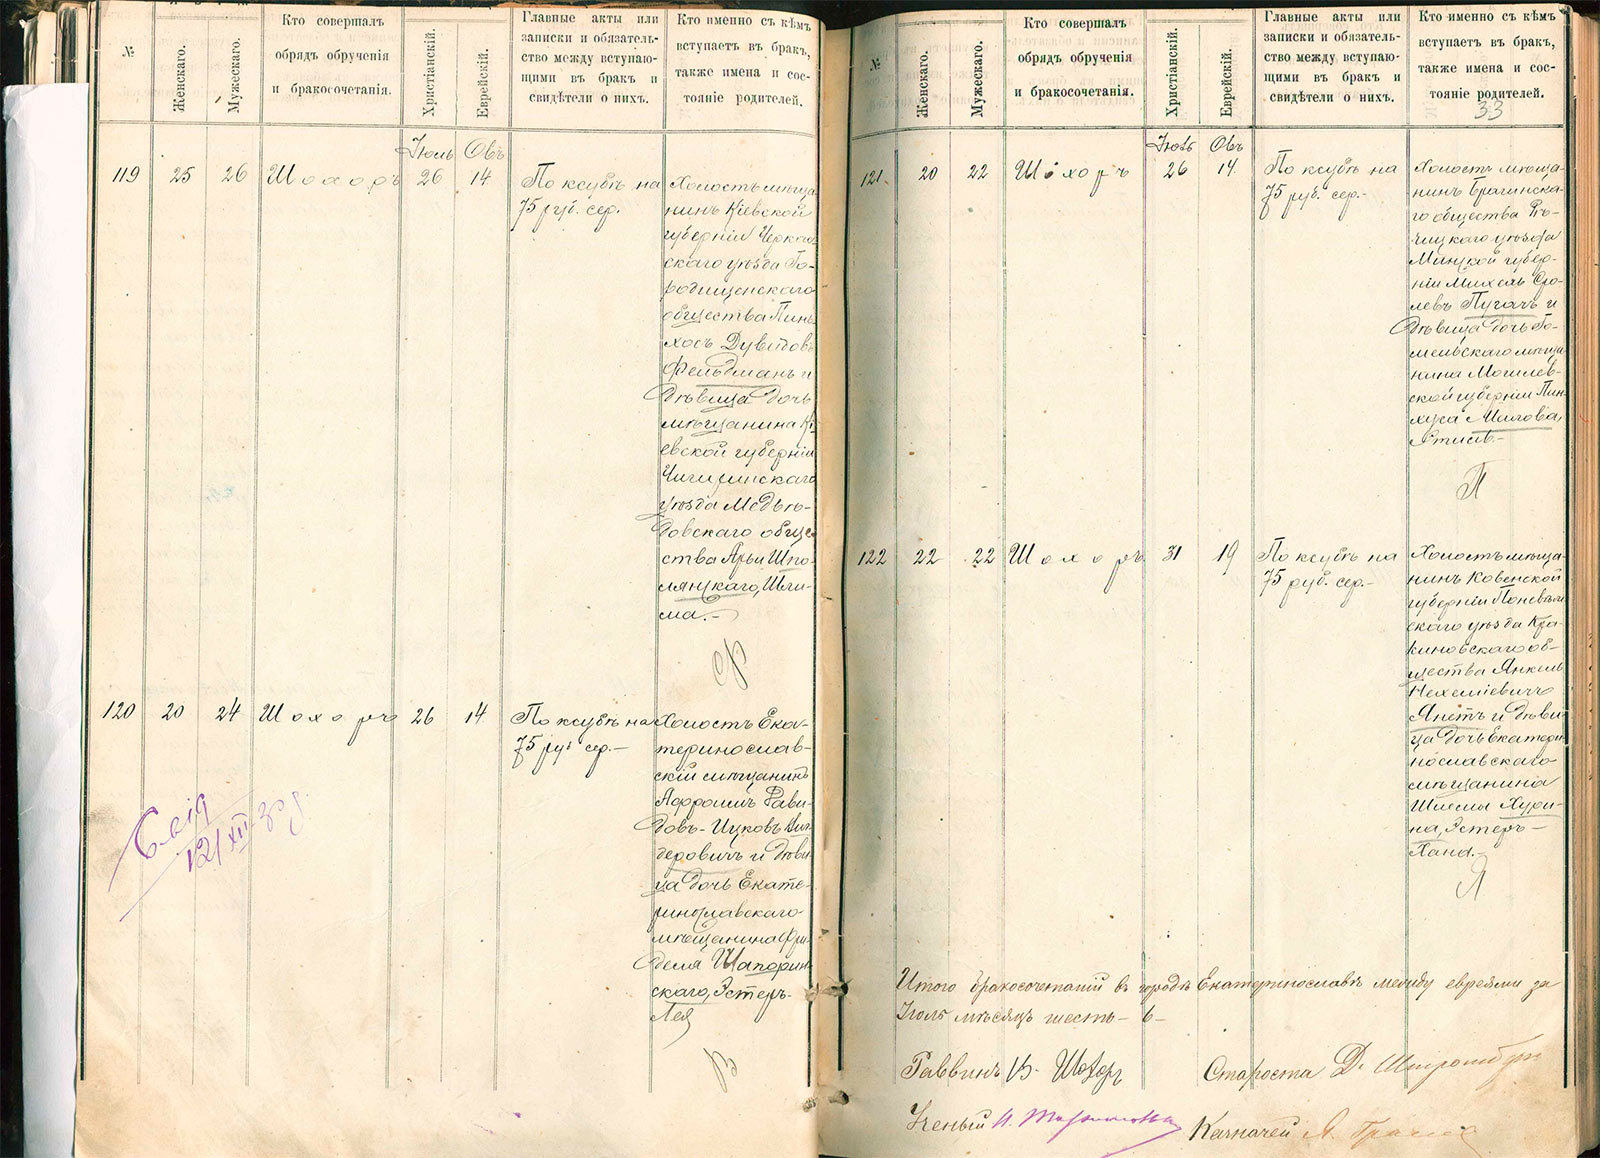 №
Женскаго.
Мужескаго.
Кто совершалъ
обрядъ обрученія
и бракосочетанія.
Христіанскій.
Еврейскій.
Главные акты или
записки и обязатель-
ство между вступаю-
щими въ бракъ и
свидѣтели о нихъ.
Кто именно съ кѣмъ
вступаетъ въ бракъ,
также имена и сос-
тояніе родителей.
Іюль Овъ
119 25 26 Шохоръ 26 14
По ксубѣ на
75 руб. сер.
Холостъ мѣща-
нинъ Кіевской
губерніи Черкас
скаго уѣзда Го-
родищенскаго
общества Пинь
хосъ Дувидовъ
Фельдманъ и
дѣвица дочь
мѣщанина Кі
евской губерніи
Чигиринскаго
уѣзда Медвѣ-
довскаго обще
ства Арьи Шпо-
лянскаго,
ма.-
Ф
120 20 24 Шохоръ 26 14
По ксубѣ на
75 руб сер.-
Холостъ Ека-
теринослав-
скій мѣщанинъ
Афроимъ Рави-
довъ-Ицковъ Виг-
деровичъ и дѣви-
ца дочь Екате-
ринославскаго
мѣщанина Фри-
деля Шапорин-
скаго, Эстеръ-
Лея
В
12/XII
№
Женскаго.
Мужескаго.
Кто совершалъ
обрядъ обрученія
и бракосочетанія.
Христіанскій.
Еврейскій.
Главные акты или
записки и обязатель-
ство между вступаю-
щими въ бракъ и
свидѣтели о нихъ.
Кто именно съ кѣмъ
вступаетъ въ бракъ,
также имена и сос-
тояніе родителей.
33
Іюль Овъ
121 20 22 Шохоръ 26 14
По ксубѣ на
75 руб. сер.-
Холостъ мѣща-
нинъ Брагинска-
го общества Рѣ-
чицкаго уѣзда
Минской губер-
ніи Михель Сро-
левъ Пугачъ и
дѣвица дочь Го-
мельскаго мѣща-
нина Могилев-
ской губерніи Пин-
хуса Малова,
П
122 22 22 Шохоръ 31 19
По ксубѣ на
75 руб. сер.-
Холостъ мѣща-
нинъ Ковенской
губерніи Поневѣж
скаго уѣзда Кра-
киновскаго об-
щества Янкель
Нехеміевичъ
Янетъ и дѣви-
ца дочь Екатери-
нославскаго
мѣщанина
Шлемы Хури-
на, Эстеръ-
Хана.-
Я
Итого бракосочетаній въ городѣ Екатеринославѣ между евреями за
Іюль мѣсяцъ шесть - 6-
Раввинъ В. Шохоръ Староста Д.
Ученый Казначей